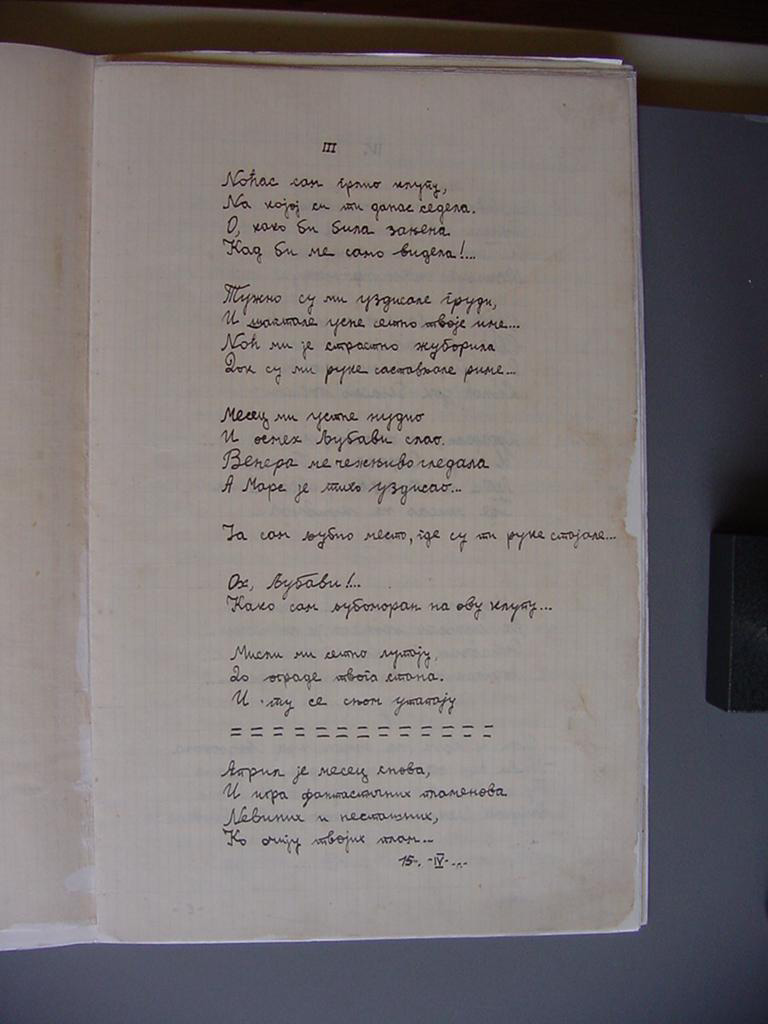 III
Ноћас сам грлио клупу,
На којој си ти данас седела.
О, како би била зањена
Кад би ме само видела!...
Тужно су ми уздисале груди,
И шаптале усне сетно твоје име...
Ноћ ми је страстно жуборила
Док су ми руке састављале риме...
Месец ми усне нудио
И осмех љубави слао.
Венера ме чежњиво гледала
А Марс је тихо уздисао...
Ја сам љубио место, где су ти руке стајале...
Ох, љубави!...
Како сам љубоморан на ову клупу...
Мисли ми сетно лутају,
До ограде твога стана.
И ту се сном утапају
= = = = = = = = = = = =
Април је месец снова,
И игра фантастичних пламенова
Невиних и несташних,
Ко очију твојих плам...
15. -IV-...